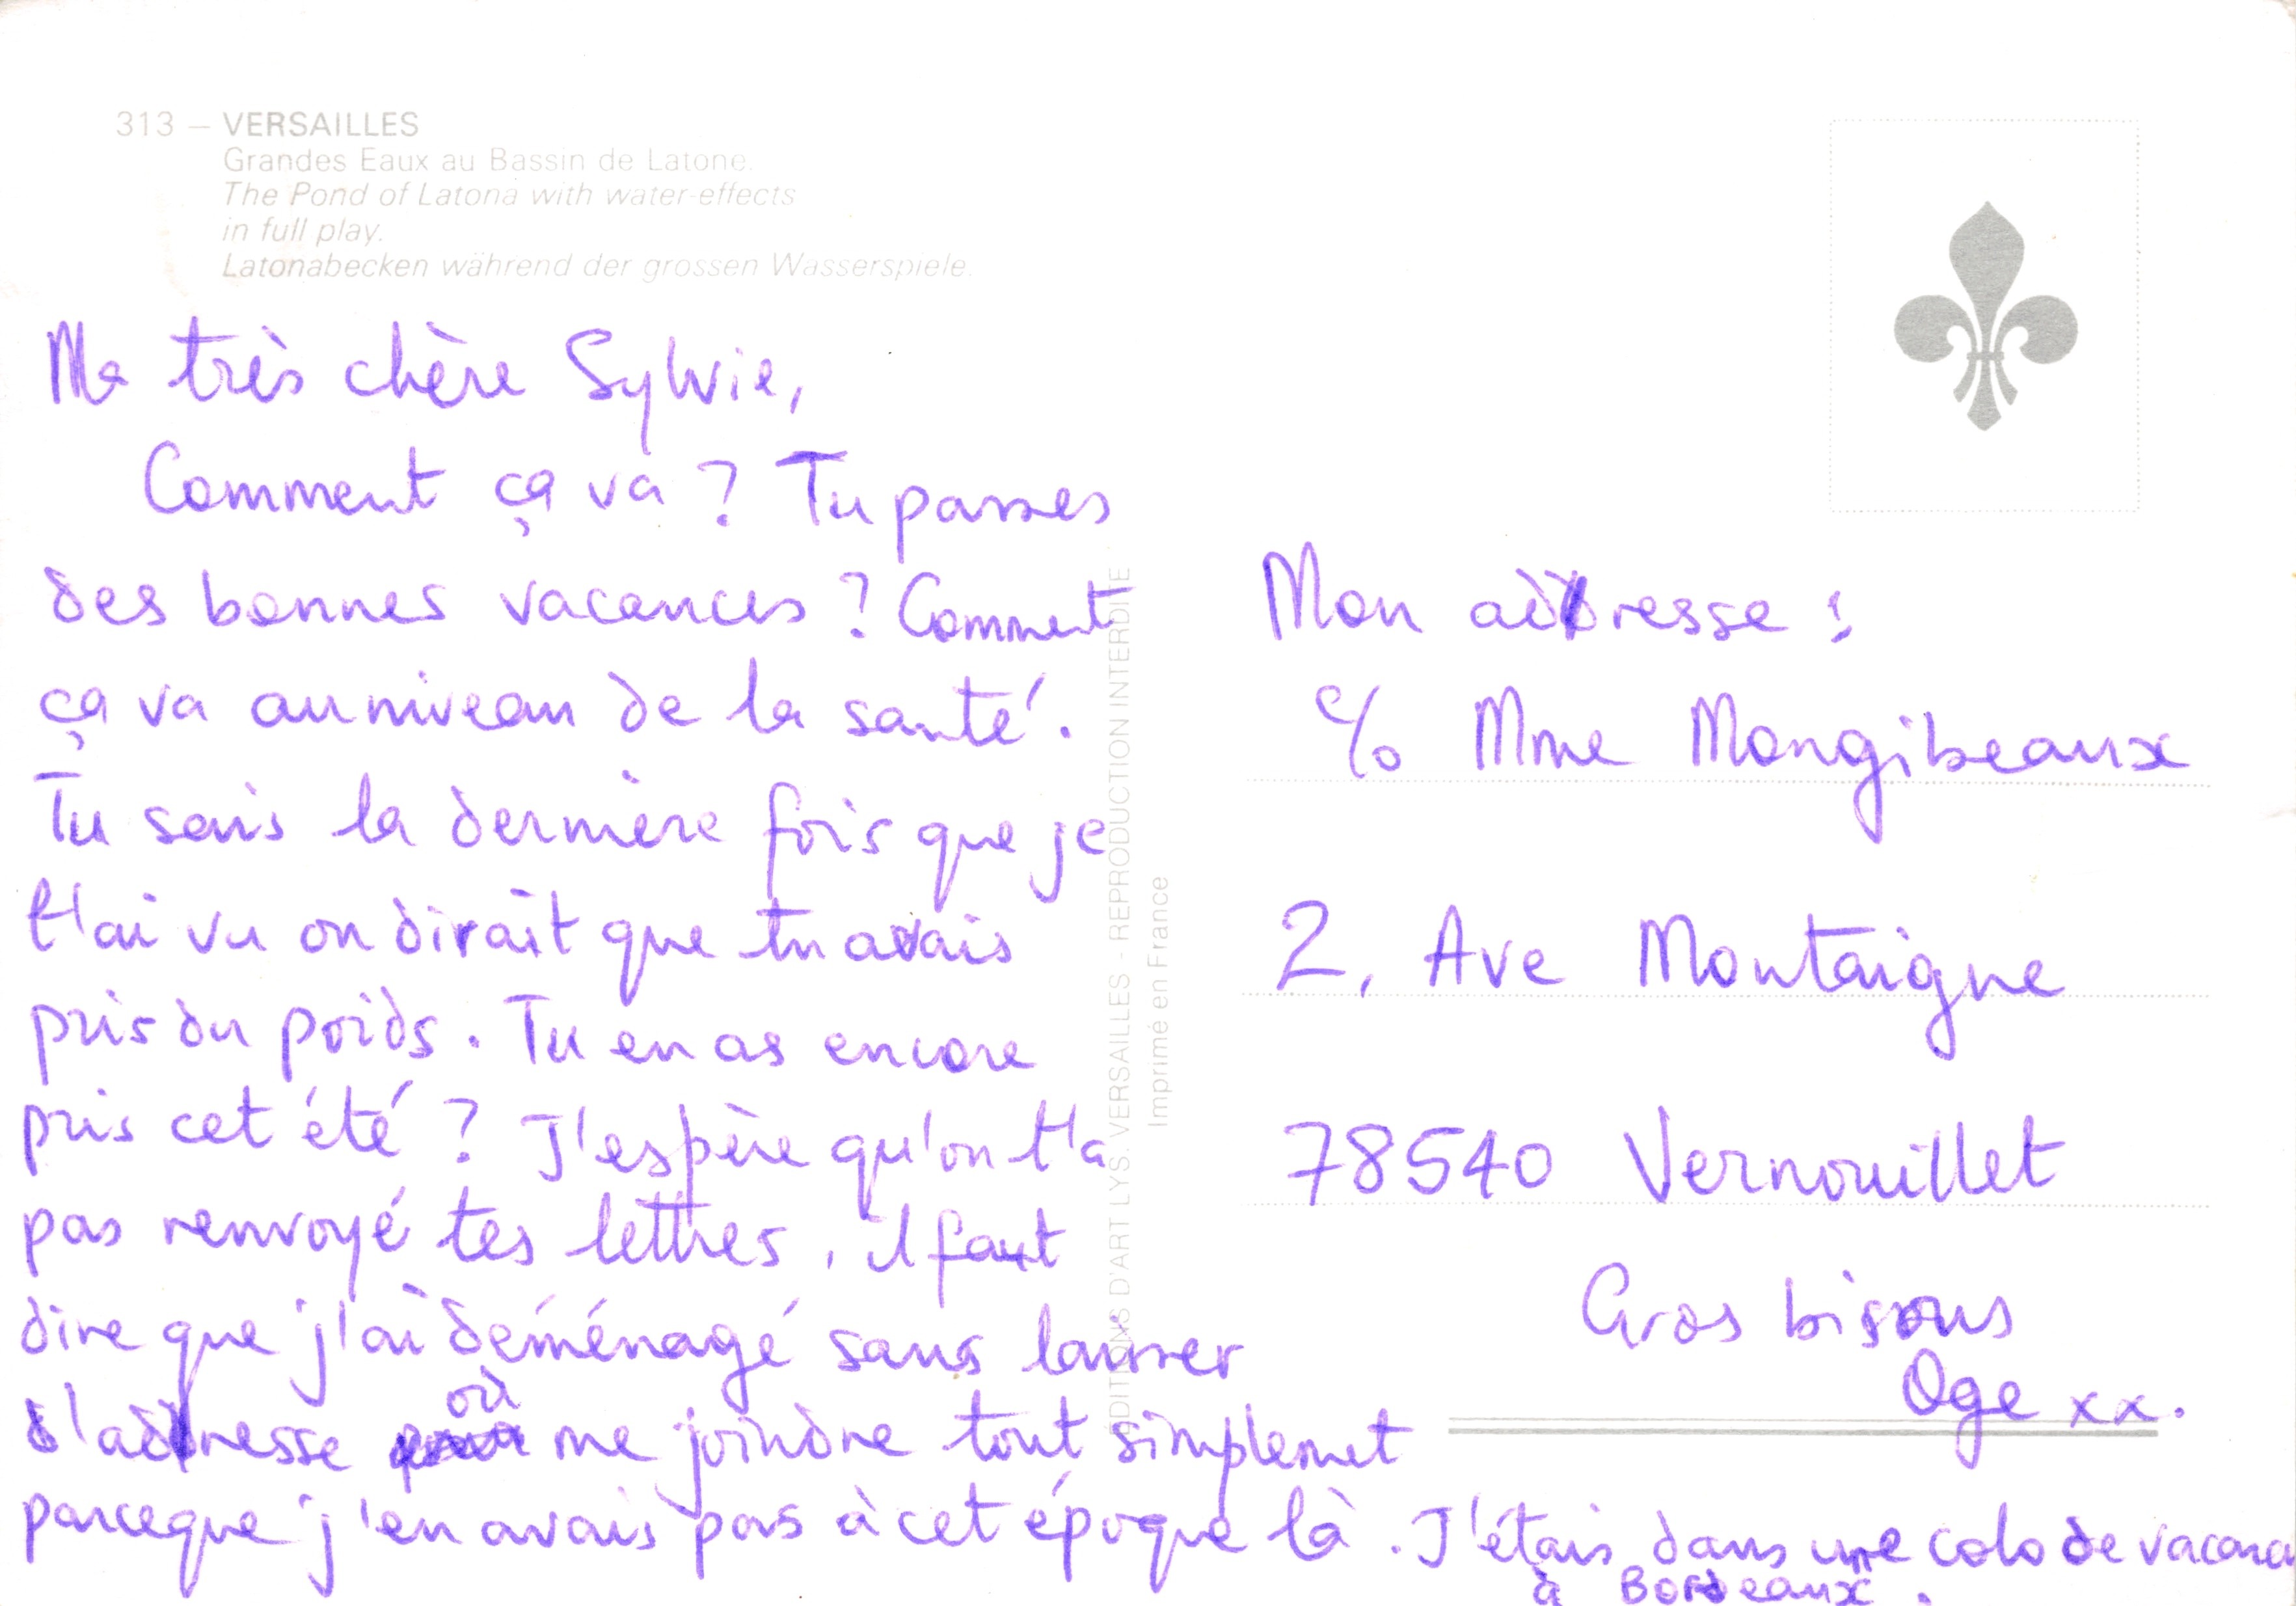 313 – VERSAILLES
Grandes Eaux au Bassin de Latone.
The Pond of Latona with water-effects
in full play.
Latonabecken während der grossen Wasserspiele.
Ma très chère Sylvie,
Comment ça va ? Tu passes
des bonnes vacances ? Comment
ça va au niveau de la santé.
Tu sais la dernière fois que je
t'ai vu on dirait que tu avais
pris du poids. Tu en as encore
pris cet été ? J'espère qu'on t'a
pas renvoyé tes lettres, il faut
dire que j'ai déménagé sans laisser
d'adresse où me joindre tout simplemet
parceque j'en avais pas à cet époque là. J'étais dans une colo de vacances
à Bordeaux.
ÉDITIONS D'ART LYS. VERSAILLES - REPRODUCTION INTERDITE
Imprimé en France
Mon adresse :
c/o Mme Mongibeaux
2, Ave Montaigne
78540 Vernouillet
Gros bisous
Oge xx.